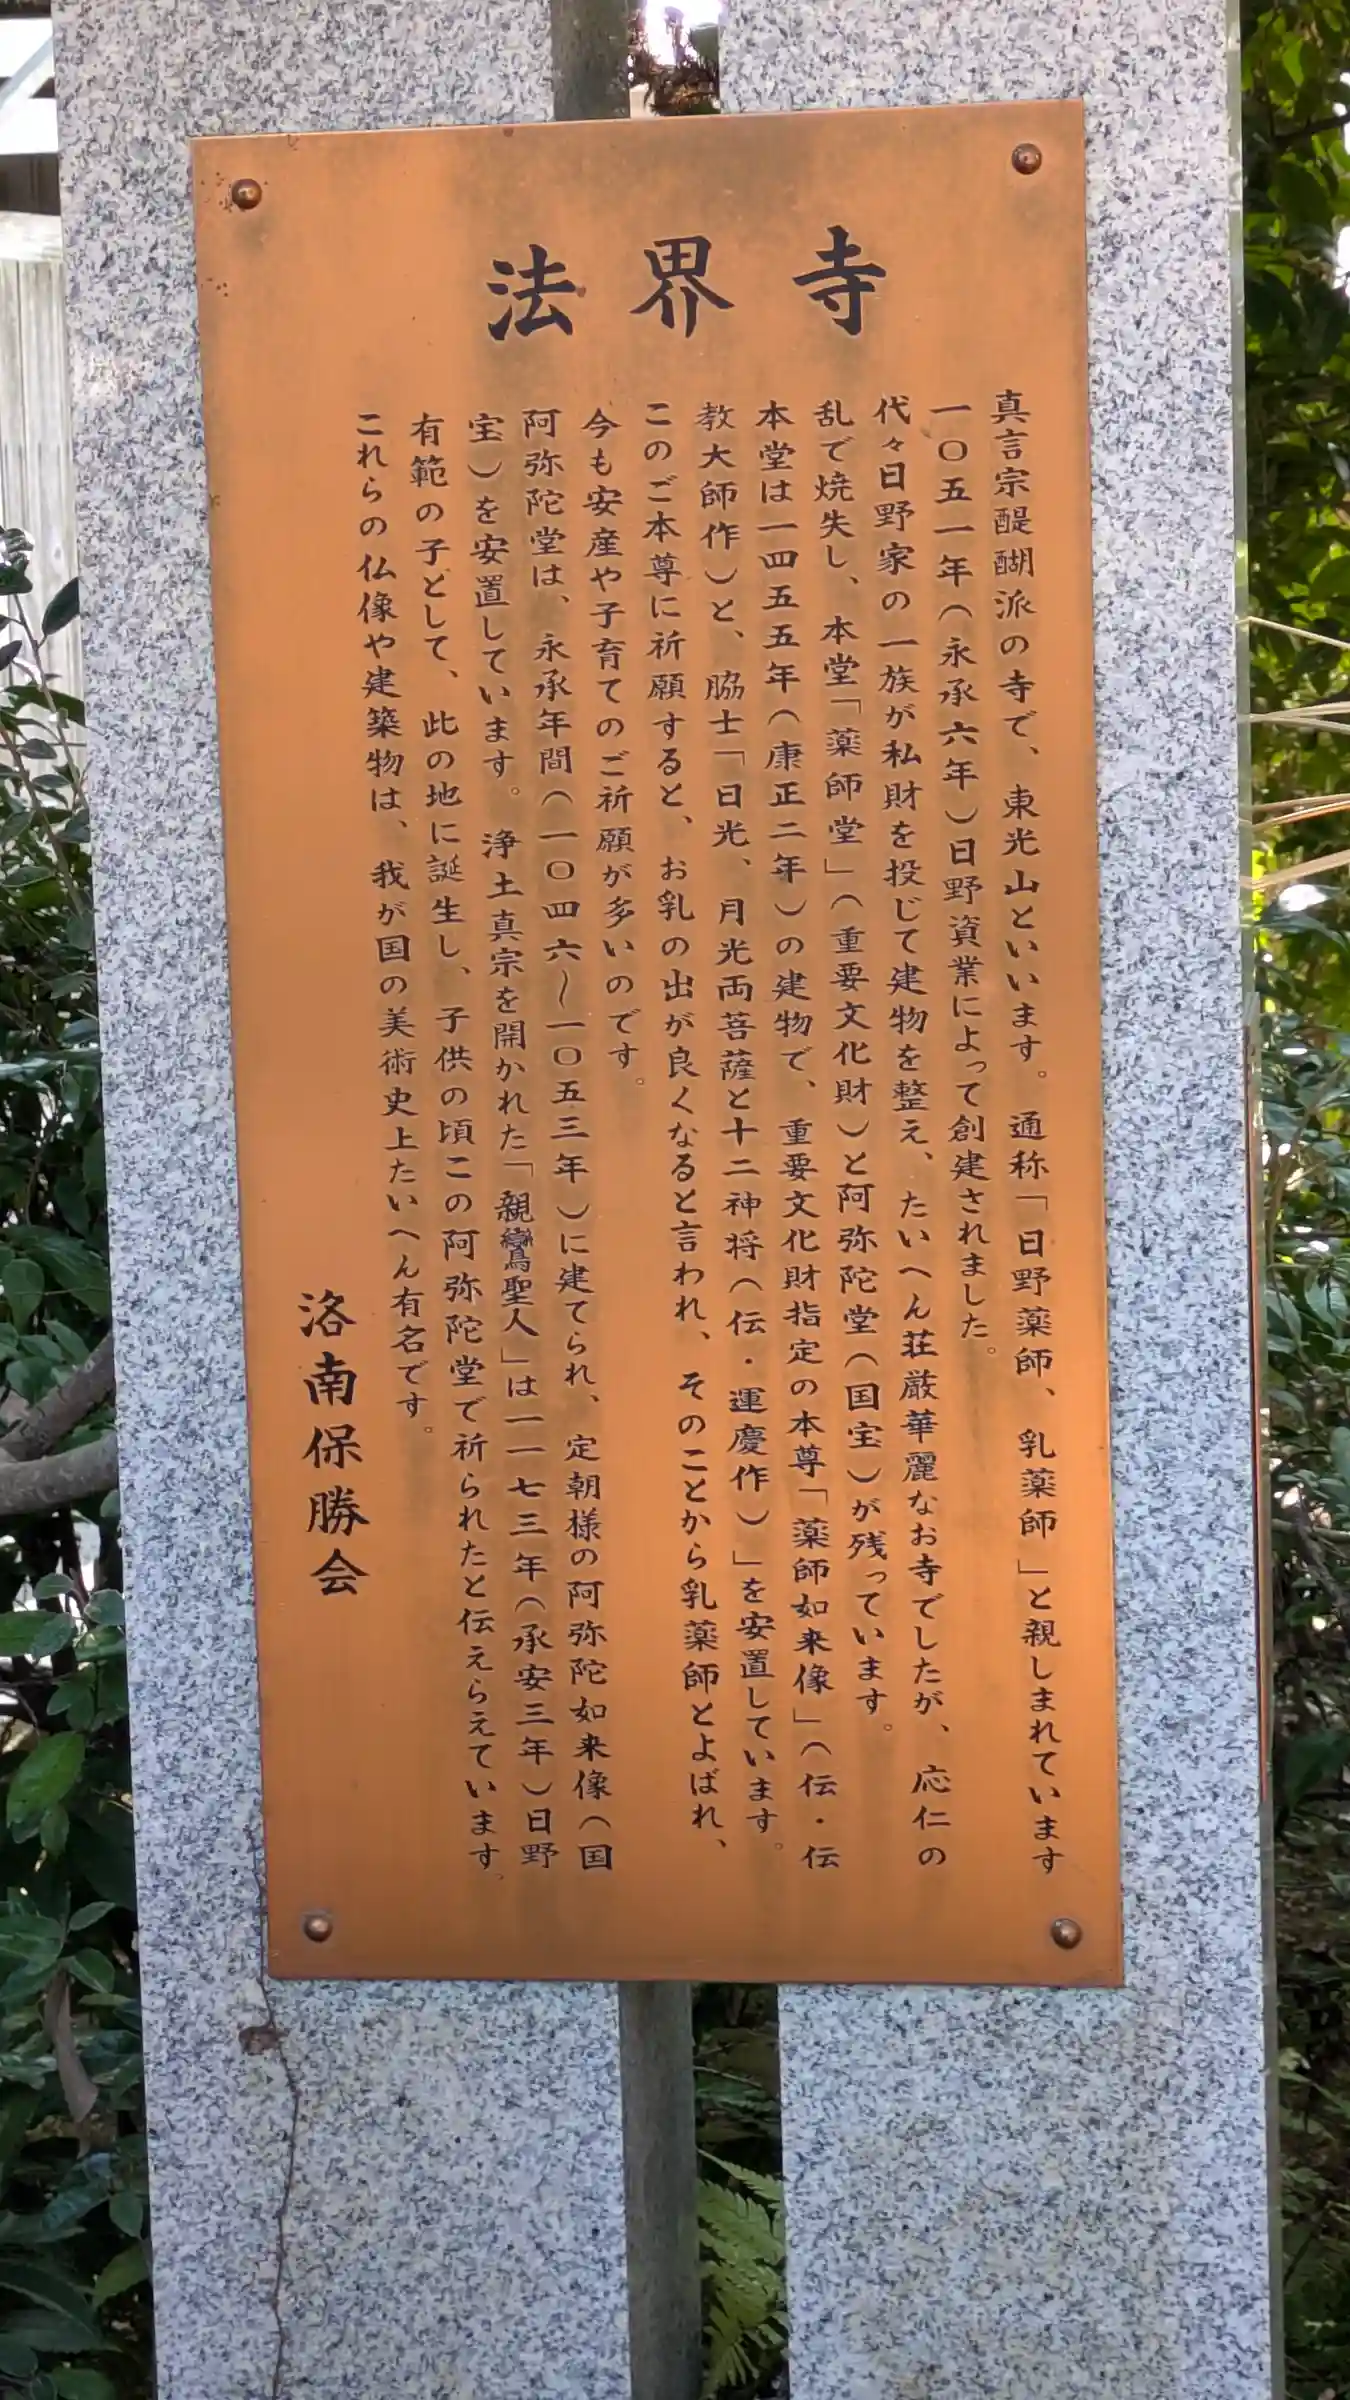 法界寺
真言宗醍醐派の寺で、東光山といいます。通称「日野薬師、乳薬師」と親しまれています
一〇五一年(永承六年)日野資業によって創建されました。
代々日野家の一族が私財を投じて建物を整え、たいへん荘厳華麗なお寺でしたが、応仁の
乱で焼失し、本堂「薬師堂」(重要文化財)と阿弥陀堂(国宝)が残っています。
本堂は一四五五年(康正二年)の建物で、重要文化財指定の本尊「薬師如来像」(伝・伝
教大師作)と、脇士「日光、月光両菩薩と十二神将(伝・運慶作)」を安置しています。
このご本尊に祈願すると、お乳の出が良くなると言われ、そのことから乳薬師とよばれ、
今も安産や子育てのご祈願が多いのです。
阿弥陀堂は、永承年間(一〇四六〜一〇五三年)に建てられ、定朝様の阿弥陀如来像(国
宝)を安置しています。浄土真宗を開かれた「親鸞聖人」は一一七三年(承安三年)日野
有範の子として、此の地に誕生し、子供の頃この阿弥陀堂で祈られたと伝えらえています。
これらの仏像や建築物は、我が国の美術史上たいへん有名です。
洛南保勝会